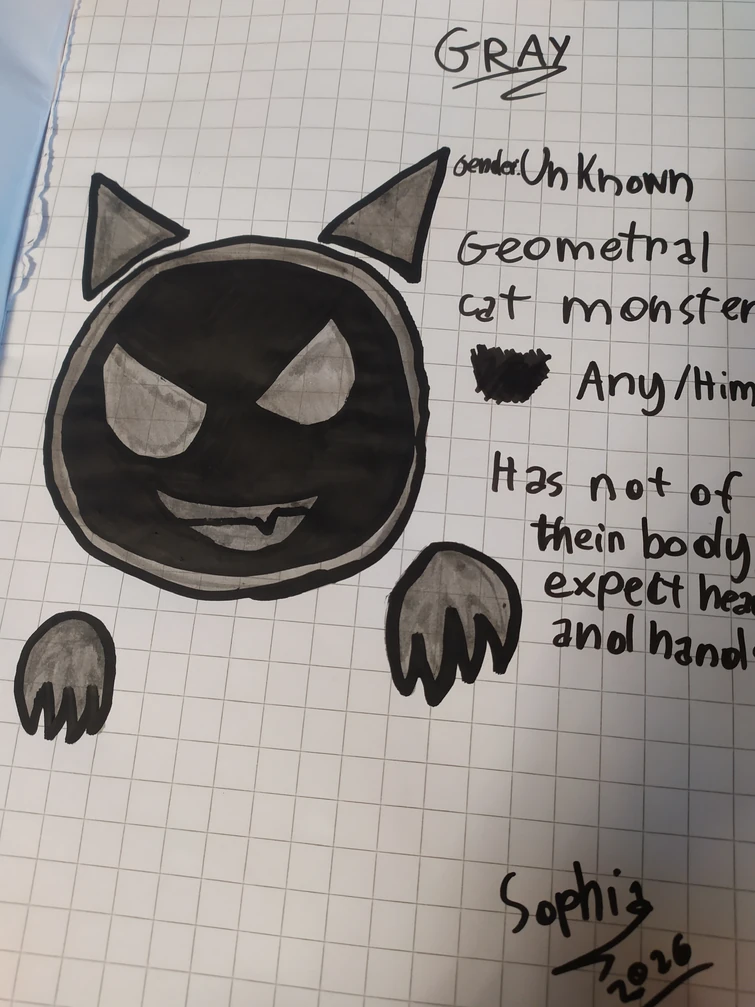 GRAY
Gender: UnKnown
Geometral
cat monster
Any/Him
Has not of
thein body
expect hea
and hands
Sophia
2026